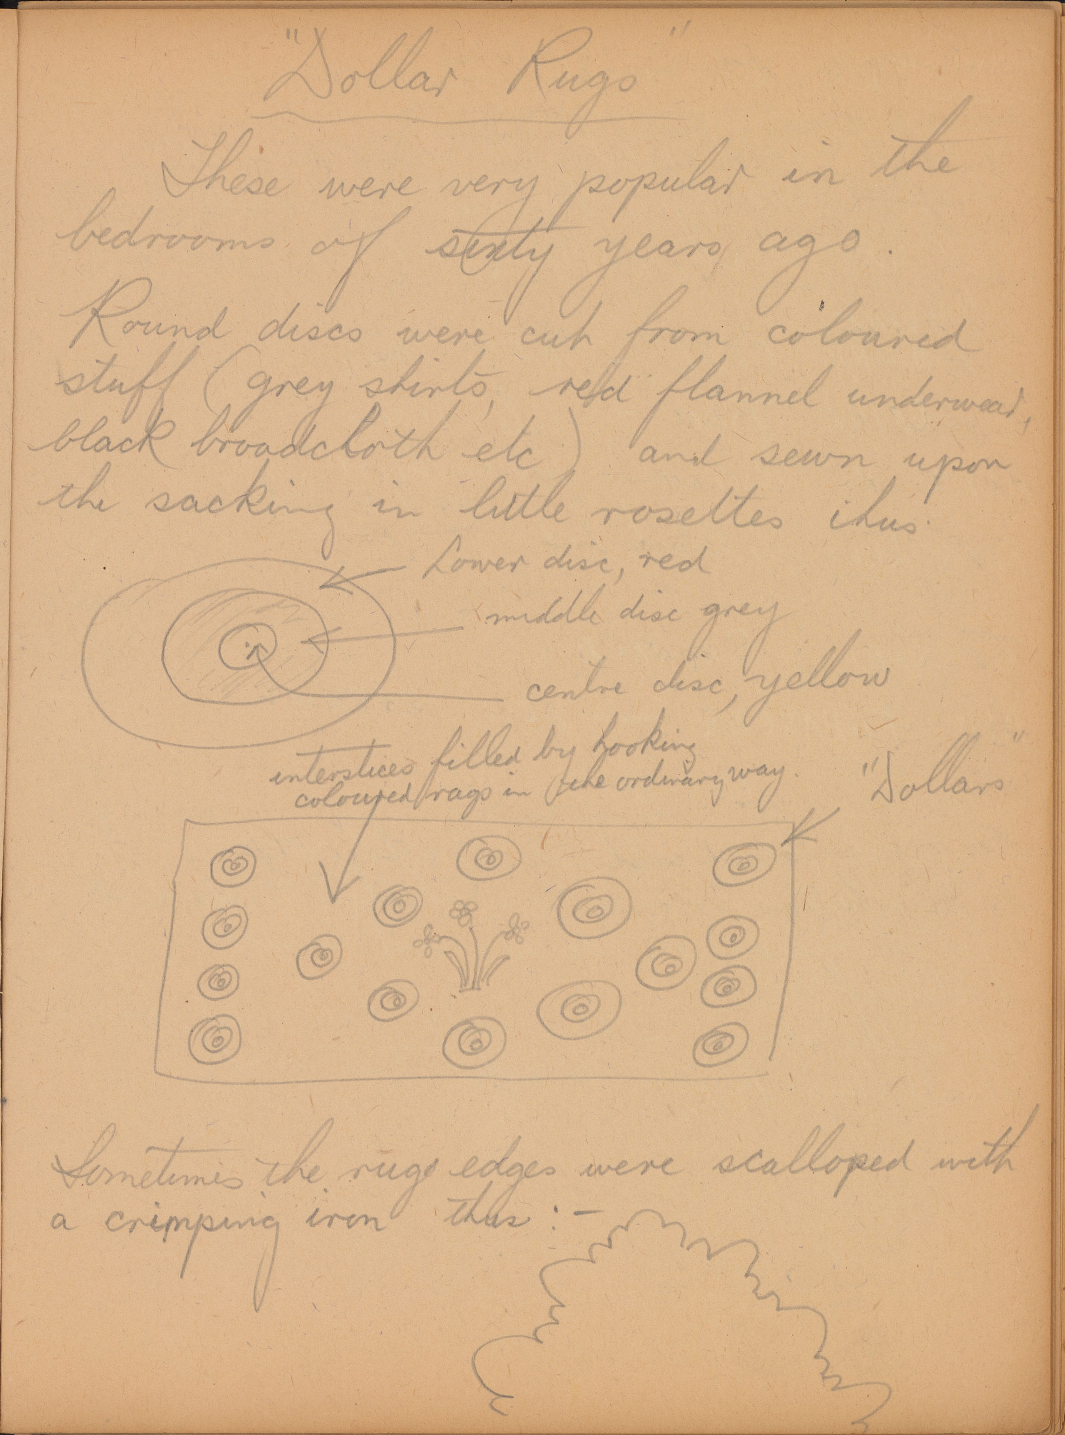 "Dollar Rugs"
These were very popular in the
bedrooms of sixty years ago.
Round discs were cut from coloured
stuff (grey shirts, red flannel underwear,
black broadcloth etc) and sewn upon
the sacking in little rosettes thus.
Lower disc, red
middle disc grey
centre disc, yellow
interstices filled by hooking
coloured rags in the ordinary way.
"Dollars"
Sometimes the rugs edges were scalloped with
a crimping iron thus :-